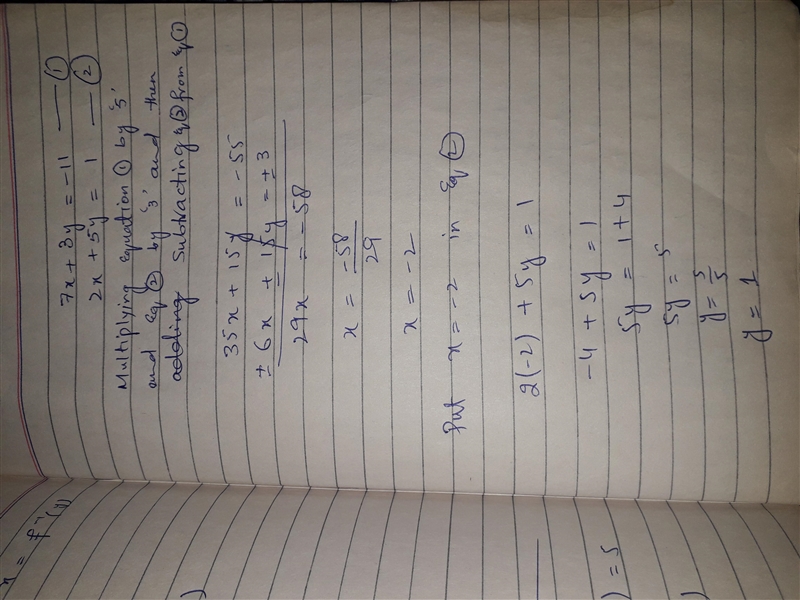 7x + 3y = -11 — ①
2x + 5y = 1 — ②
Multiplying equation ① by '5'
and eq ② by '3' and then
adding Subtracting eq ② from eq ①
35x + 15y = -55
± 6x ± 15y = ± 3
29x = -58
x = -58/29
x = -2
Put x = -2 in eq ②
2(-2) + 5y = 1
-4 + 5y = 1
5y = 1 + 4
5y = 5
y = 5/5
y = 1
x = f⁻¹(y)
)
) = 5
)